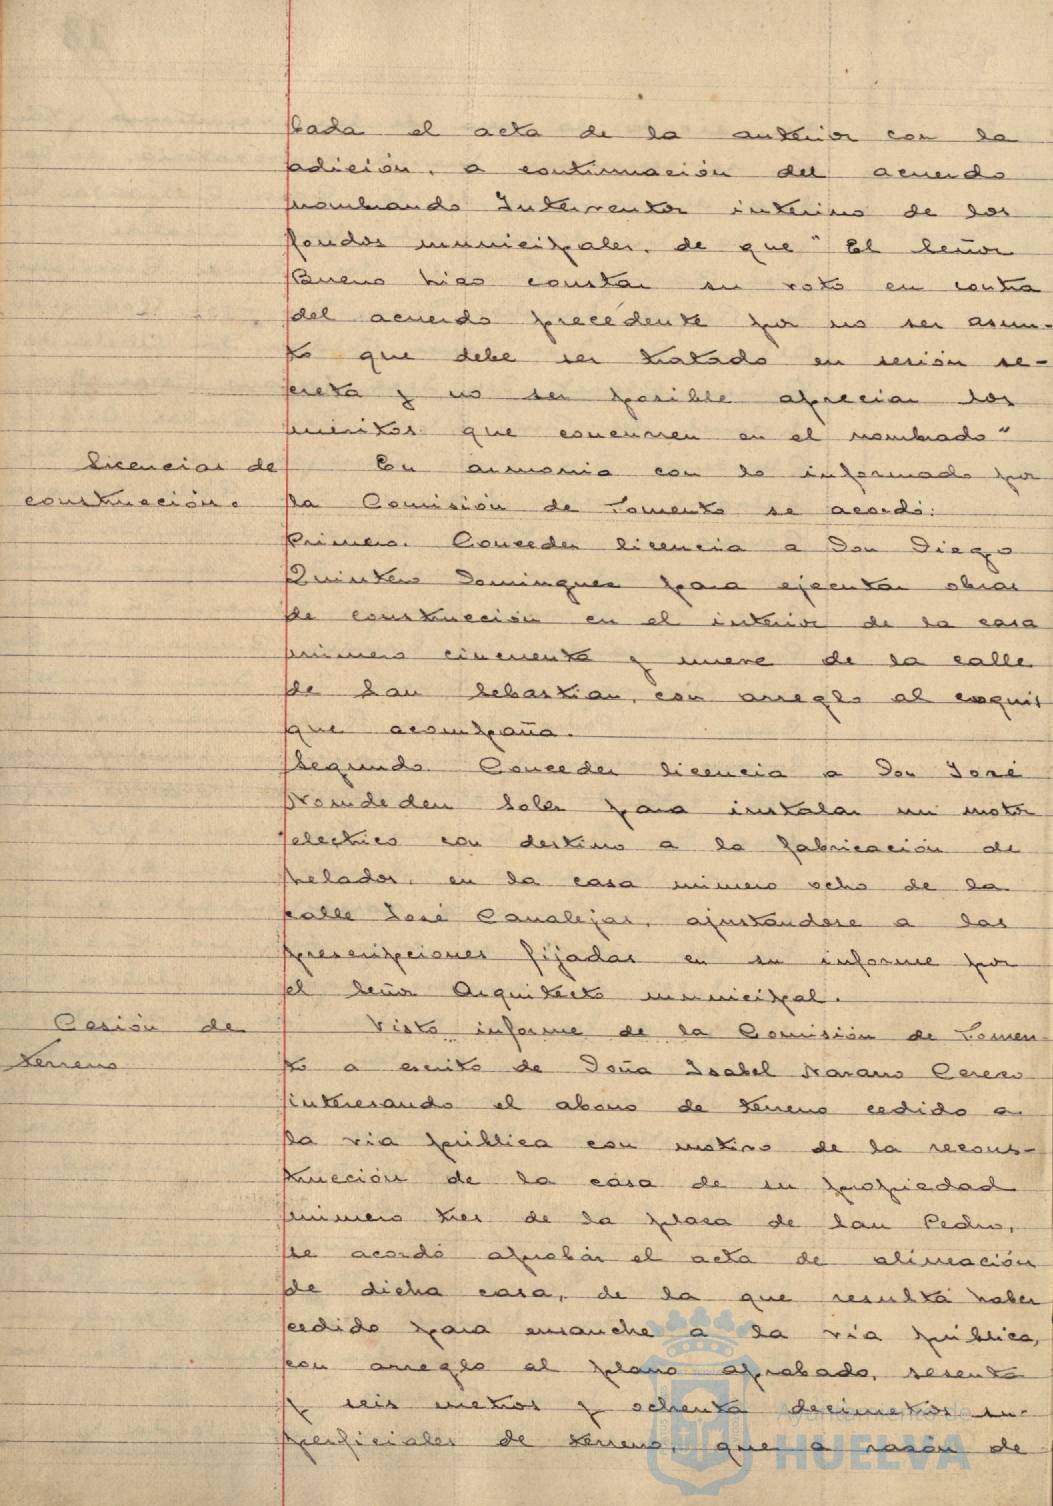 bada el acta de la anterior con la
adición, a continuación del acuerdo
nombrando Interventor interino de los
fondos municipales, de que "El Señor
Bueno hizo constar su voto en contra
del acuerdo precedente por no ser asun-
to que debe ser tratado en sesión se-
creta y no ser posible apreciar los
méritos que concurren en el nombrado"
Licencias de
construcción.
En armonia con lo informado por
la Comisión de Fomento se acordó:
Primero. Conceder licencia a Don Diego
Quintero Dominguez para ejecutar obras
de construcción en el interior de la casa
número cincuenta y nueve de la calle
de San Sebastian, con arreglo al croquis
que acompaña.
Segundo. Conceder licencia a Don José
Soler para instalar un motor
electrico con destino a la fabricación de
helados, en la casa número ocho de la
calle José Canalejas, ajustandose a las
prescripciones fijadas en su informe por
el Señor Arquitecto municipal.
Cesión de
terreno
Visto informe de la Comisión de Fomen-
to a escrito de Doña Isabel Cerezo
interesando el abono de terreno cedido a
la via pública con motivo de la recons-
trucción de la casa de su propiedad
número tres de la plaza de San Pedro,
se acordó aprobar el acta de alineación
de dicha casa, de la que resulta haber
cedido para ensanche a la via pública,
con arreglo al plano aprobado, sesenta
y seis metros y ochenta decimetros su-
perficiales de terreno, que a razón de
Ayuntamiento de
HUELVA